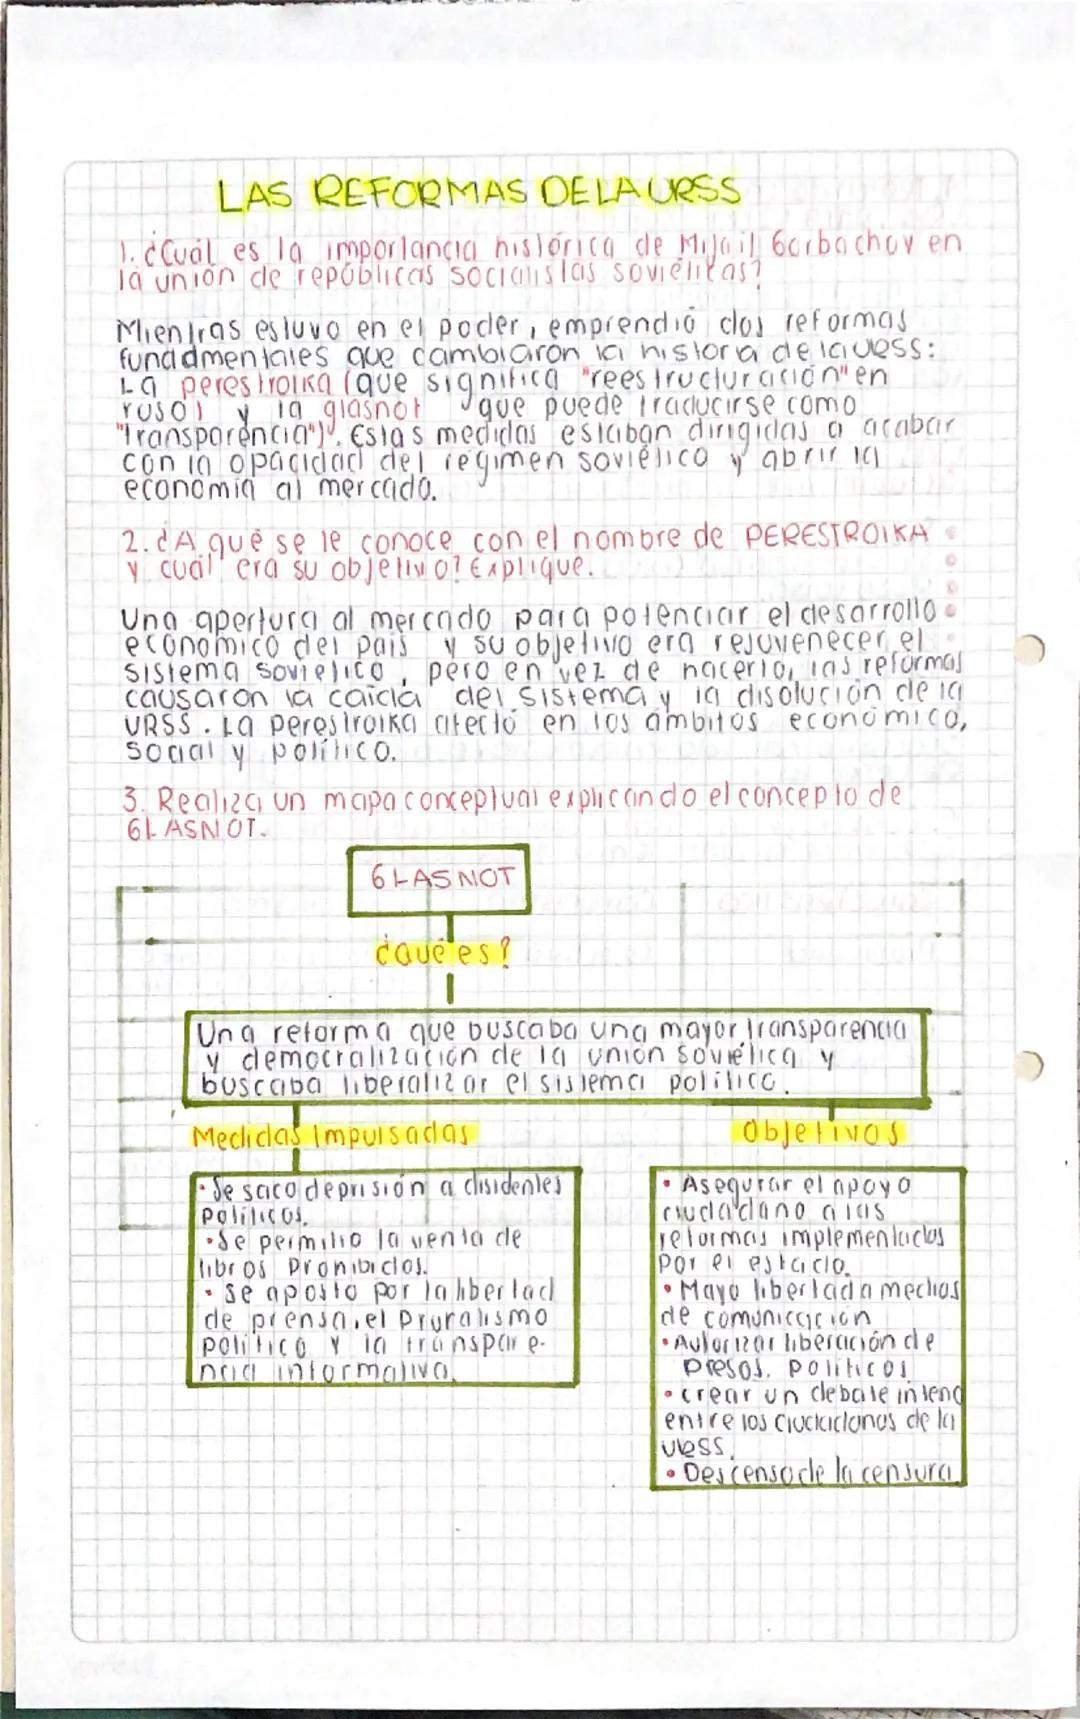 LAS REFORMAS DE LA URSS
1. ¿Cuál es la importancia histórica de Mijail Gorbachov en
la unión de repúblicas socialistas soviéticas?
Mientras estuvo en el poder, emprendió dos reformas
fundadmentales que cambiaron la historia de la URSS:
La perestroika (que significa "reestructuración" en
ruso) y la glasnot que puede traducirse como
"transparencia"). Estas medidas estaban dirigidas a acabar
con la opacidad del régimen soviético y abrir la
economía al mercado.
2. ¿A qué se le conoce con el nombre de PERESTROIKA
y cuál era su objetivo? Explique.
Una apertura al mercado para potenciar el desarrollo
económico del país y su objetivo era rejuvenecer el
sistema soviético, pero en vez de hacerlo, las reformas
causaron la caída del sistema y la disolución de la
URSS. La perestroika afectó en los ámbitos económico,
social y político.
3. Realiza un mapa conceptual explicando el concepto de
GLASNOT.
GLASNOT
¿Qué es?
Una reforma que buscaba una mayor transparencia
y democralización de la unión soviética y
buscaba liberalizar el sistema político.
Medidas Impulsadas
Objetivos
• Se saco de prisión a disidentes
políticos.
• Se permitio la venta de
libros Prohibidos.
• Se aposto por la libertad
de prensa, el Pruralismo
político y la transpare-
ncia informativa.
• Asegurar el apoyo
ciudadano a las
reformas implementadas
por el estado.
• Mayo libertad a medios
de comunicación
• Autorizar liberación de
presos. políticos
• crear un debate intenc
entre los ciudadanos de la
URSS.
• Descenso de la censura.